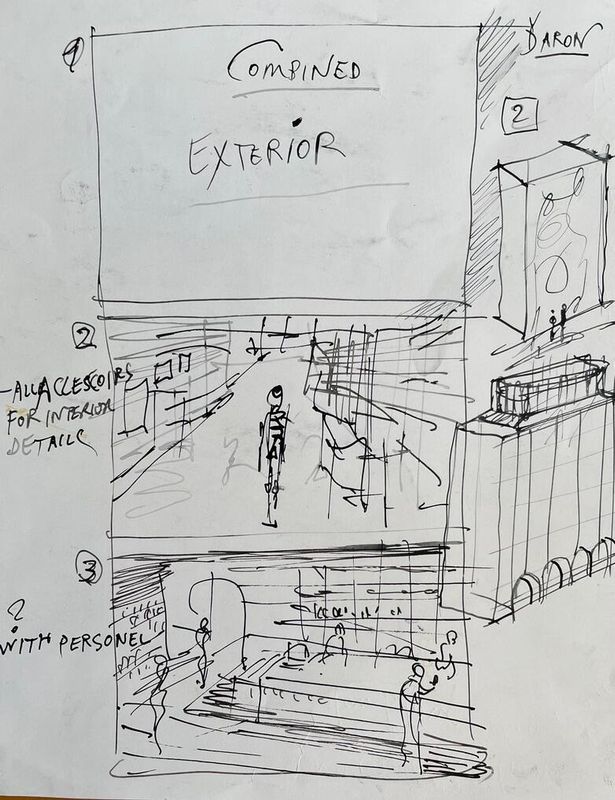 1
COMBINED
EXTERIOR
BARON
2
2
- ALL ACCESCOIRS
FOR INTERIOR
DETAILS
3
?
WITH PERSONEL